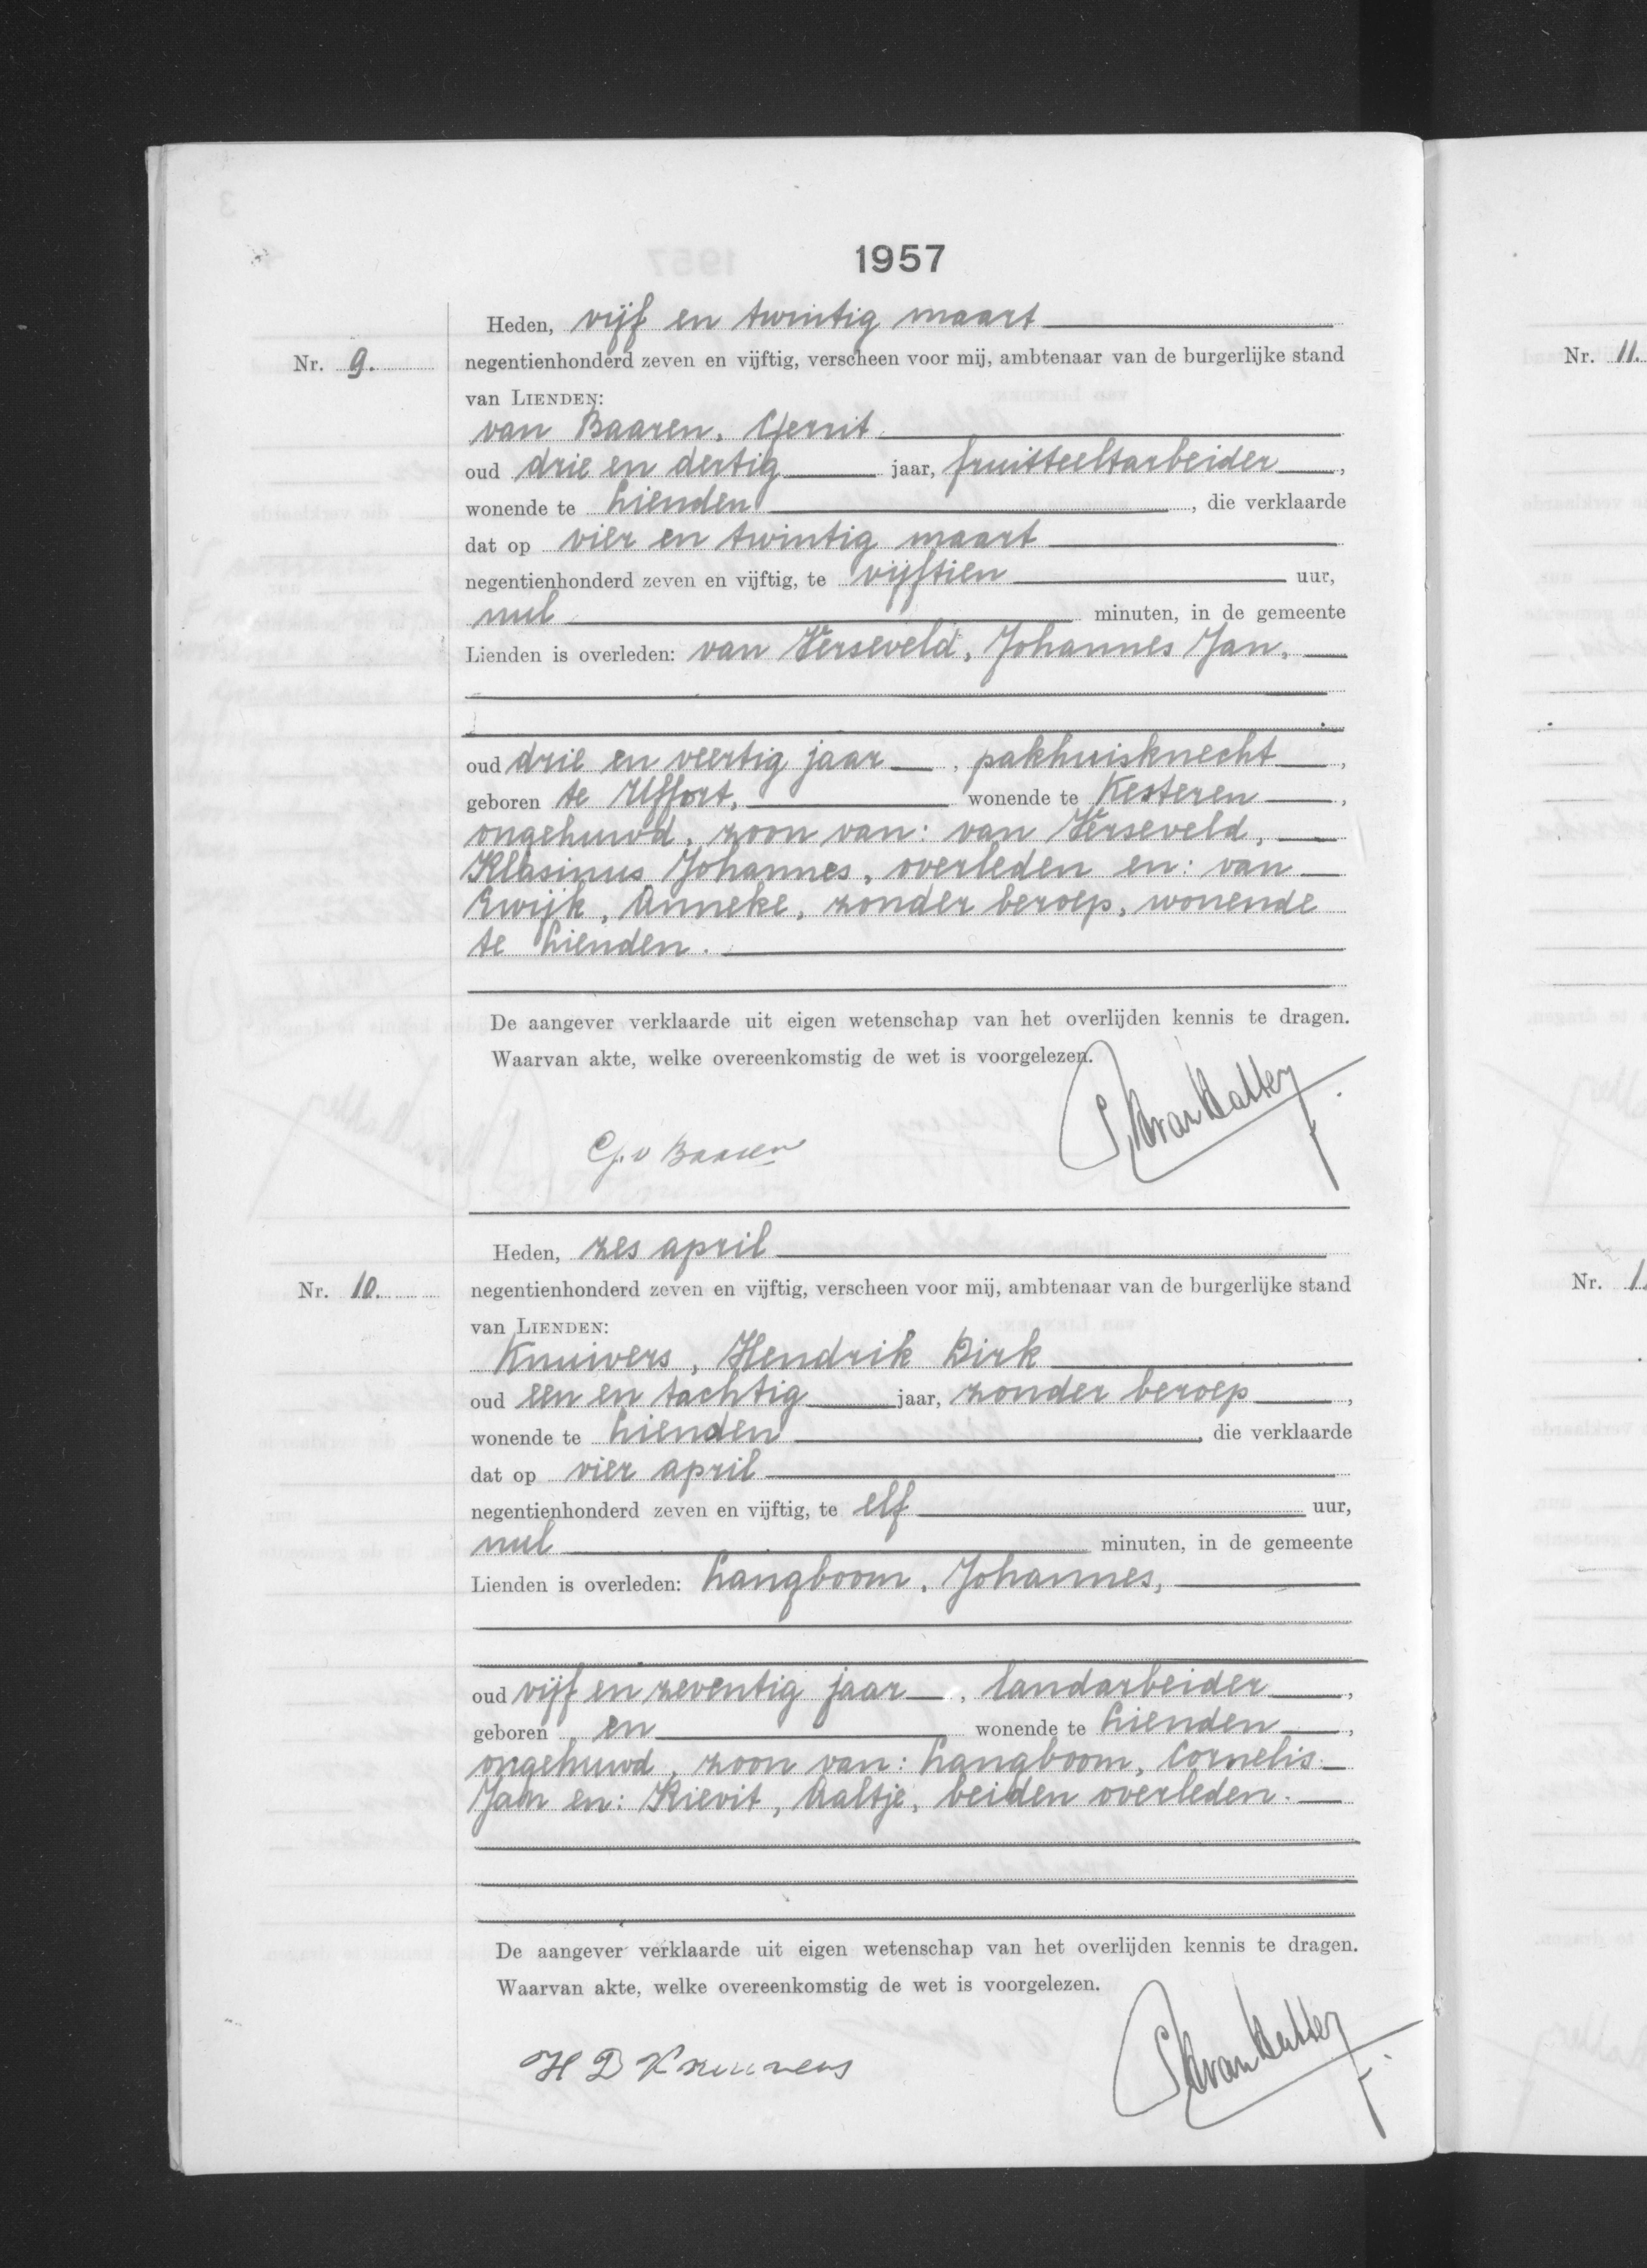 1957
Heden, vijf en twintig maart
Nr. 9.
negentienhonderd zeven en vijftig, verscheen voor mij, ambtenaar van de burgerlijke stand
van LIENDEN:
van Baaren, Gerrit
oud drie en dertig jaar, fruitteeltarbeider,
wonende te Lienden, die verklaarde
dat op vier en twintig maart
negentienhonderd zeven en vijftig, te vijftien uur,
nul minuten, in de gemeente
Lienden is overleden: van Verseveld, Johannes Jan,
oud drie en veertig jaar, pakhuisknecht,
geboren te IJffort, wonende te Kesteren,
ongehuwd, zoon van: van Verseveld,
Klasinus Johannes, overleden en: van
Ewijk, Anneke, zonder beroep, wonende
te Lienden.
De aangever verklaarde uit eigen wetenschap van het overlijden kennis te dragen.
Waarvan akte, welke overeenkomstig de wet is voorgelezen.
G. v Baaren
Heden, zes april
Nr. 10.
negentienhonderd zeven en vijftig, verscheen voor mij, ambtenaar van de burgerlijke stand
van LIENDEN:
Knuivers, Hendrik Dirk
oud een en tachtig jaar, zonder beroep,
wonende te Lienden, die verklaarde
dat op vier april
negentienhonderd zeven en vijftig, te elf uur,
nul minuten, in de gemeente
Lienden is overleden: Langboom, Johannes,
oud vijf en zeventig jaar, landarbeider,
geboren en wonende te Lienden,
ongehuwd, zoon van: Langboom, Cornelis
Jan en: Kievit, Aaltje, beiden overleden.
De aangever verklaarde uit eigen wetenschap van het overlijden kennis te dragen.
Waarvan akte, welke overeenkomstig de wet is voorgelezen.
H D Knuivers
Nr. 11.
Nr.